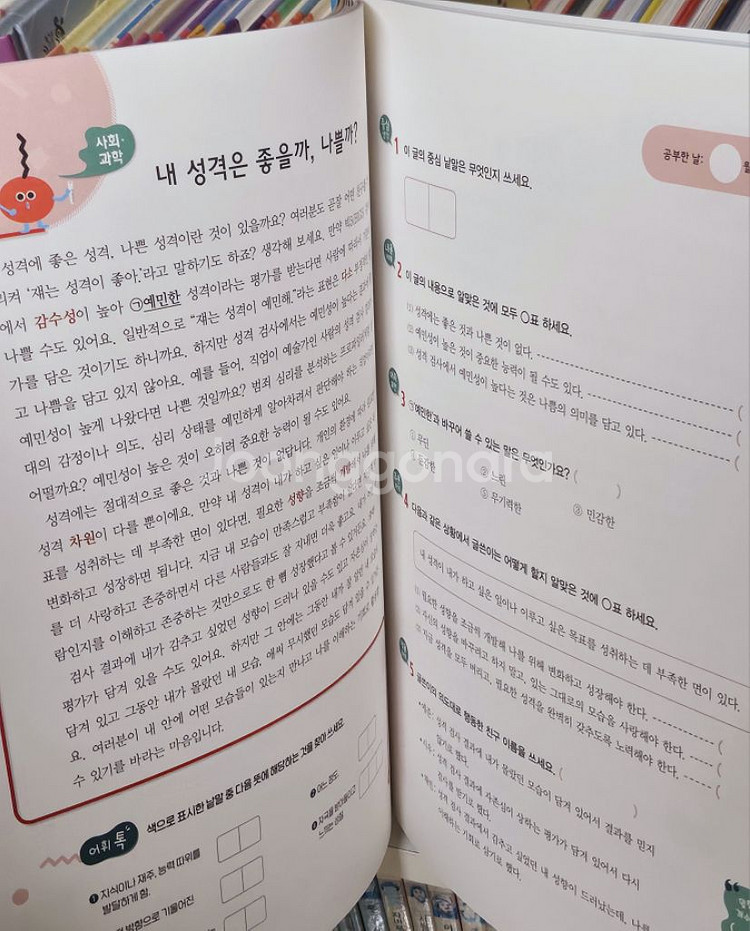 사회·
과학
내 성격은 좋을까, 나쁠까?
성격에 좋은 성격, 나쁜 성격이란 것이 있을까요? 여러분도 곧잘 어떤 친구를
'쟤는 성격이 좋아.'라고 말하기도 하죠? 생각해 보세요. 만약
에서 감수성이 높아 ㉠예민한 성격이라는 평가를 받는다면 사람에 따라서
나쁠 수도 있어요. 일반적으로 "쟤는 성격이 예민해."라는 표현은 다소
가를 담은 것이기도 하니까요. 하지만 성격 검사에서는 예민성이 높다는
고 나쁨을 담고 있지 않아요. 예를 들어, 직업이 예술가인 사람의 성격 검사
예민성이 높게 나왔다면 나쁜 것일까요? 범죄 심리를 분석하는
대의 감정이나 의도, 심리 상태를 예민하게 알아차려서 판단해야 하는
어떨까요? 예민성이 높은 것이 오히려 중요한 능력이 될 수도 있어요.
성격에는 절대적으로 좋은 것과 나쁜 것이 없답니다. 개인의 환경에 따라
성격 차원이 다를 뿐이에요. 만약 내 성격이 내가 하고 싶은 일이나 이루고 싶은
표를 성취하는 데 부족한 면이 있다면, 필요한 성향을 조금씩
변화하고 성장하면 됩니다. 지금 내 모습이 만족스럽고 부족함이
를 더 사랑하고 존중하면서 다른 사람들과도 잘 지내면 더욱 좋고요.
람인지를 이해하고 존중하는 것만으로도 한 뼘 성장했다고 볼 수 있거든요.
검사 결과에 내가 감추고 싶었던 성향이 드러나 있을 수도 있고
평가가 담겨 있을 수도 있어요. 하지만 그 안에는 그동안 내가 몰랐던 내
담겨 있고 그동안 내가 몰랐던 내 모습, 애써 무시했던 모습도 담겨 있을 수
요. 여러분이 내 안에 어떤 모습들이 있는지 만나고 나를 이해하는
수 있기를 바라는 마음입니다.
어휘 톡
색으로 표시한 낱말 중 다음 뜻에 해당하는 것을 찾아 쓰세요.
❶ 지식이나 재주, 능력 따위를
발달하게 함.
방향으로 기울어진
❷
❹ 자극을 받아들이고
느끼는 성질.
공부한 날:
월
1 이 글의 중심 낱말은 무엇인지 쓰세요.
2 이 글의 내용으로 알맞은 것에 모두 ○표 하세요.
(1) 성격에는 좋은 것과 나쁜 것이 없다. (
(2) 예민성이 높은 것이 중요한 능력이 될 수도 있다. (
(3) 성격 검사에서 예민성이 높다는 것은 나쁨의 의미를 담고 있다. (
3 ㉠'예민한'과 바꾸어 쓸 수 있는 말은 무엇인가요? ( )
① 무딘
② 느린
③ 민감한
④ 둔감한
⑤ 무기력한
4 다음과 같은 상황에서 글쓴이는 어떻게 할지 알맞은 것에 ○표 하세요.
내 성격이 내가 하고 싶은 일이나 이루고 싶은 목표를 성취하는 데 부족한 면이 있다.
(1) 필요한 성향을 조금씩 개발해 나를 위해 변화하고 성장해야 한다. (
(2) 자신의 성향을 바꾸려고 하지 말고, 있는 그대로의 모습을 사랑해야 한다. (
(3) 지금 성격을 모두 버리고, 필요한 성격을 완벽히 갖추도록 노력해야 한다. (
5 글쓴이의 의도대로 행동한 친구 이름을 쓰세요. ( )
성격 검사 결과에 내가 몰랐던 모습이 담겨 있어서 결과를 믿지
않기로 했다.
성격 검사 결과에 자존심이 상하는 평가가 담겨 있어서 다시
검사를 받기로 했다.
성격 검사 결과에서 감추고 싶었던 내 성향이 드러났는데, 나를
이해하는 기회로 삼기로 했다.
joonagonara